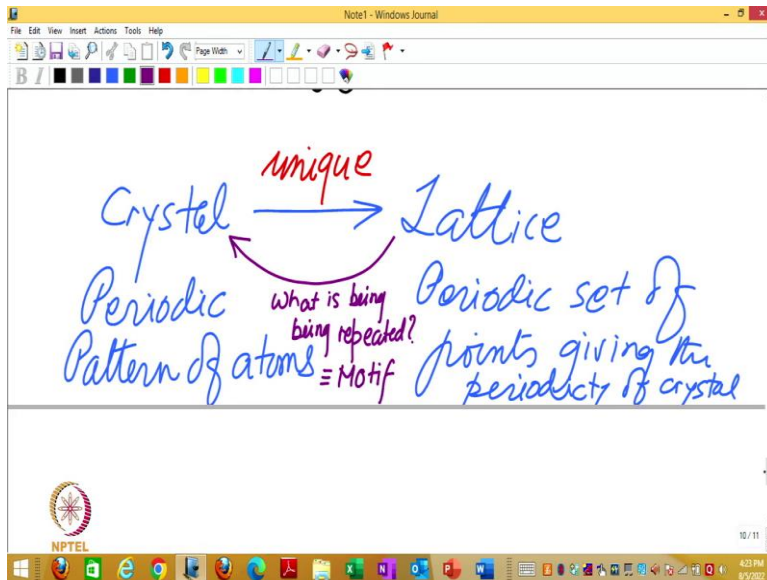 Note1 - Windows Journal
File Edit View Insert Actions Tools Help
Page Width
B I
unique
Crystal Lattice
Periodic
Pattern of atoms
What is being
being repeated?
≡ Motif
Periodic set of
points giving the
periodicty of crystal
NPTEL
10 / 11
4:23 PM